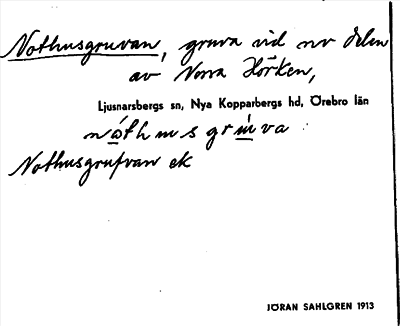 Nothusgruvan, gruva vid nv delen
av Norra Hörken,
Ljusnarsbergs sn, Nya Kopparbergs hd, Örebro län
nóthusgrúva
Nothusgrufvan ek
JÖRAN SAHLGREN 1913